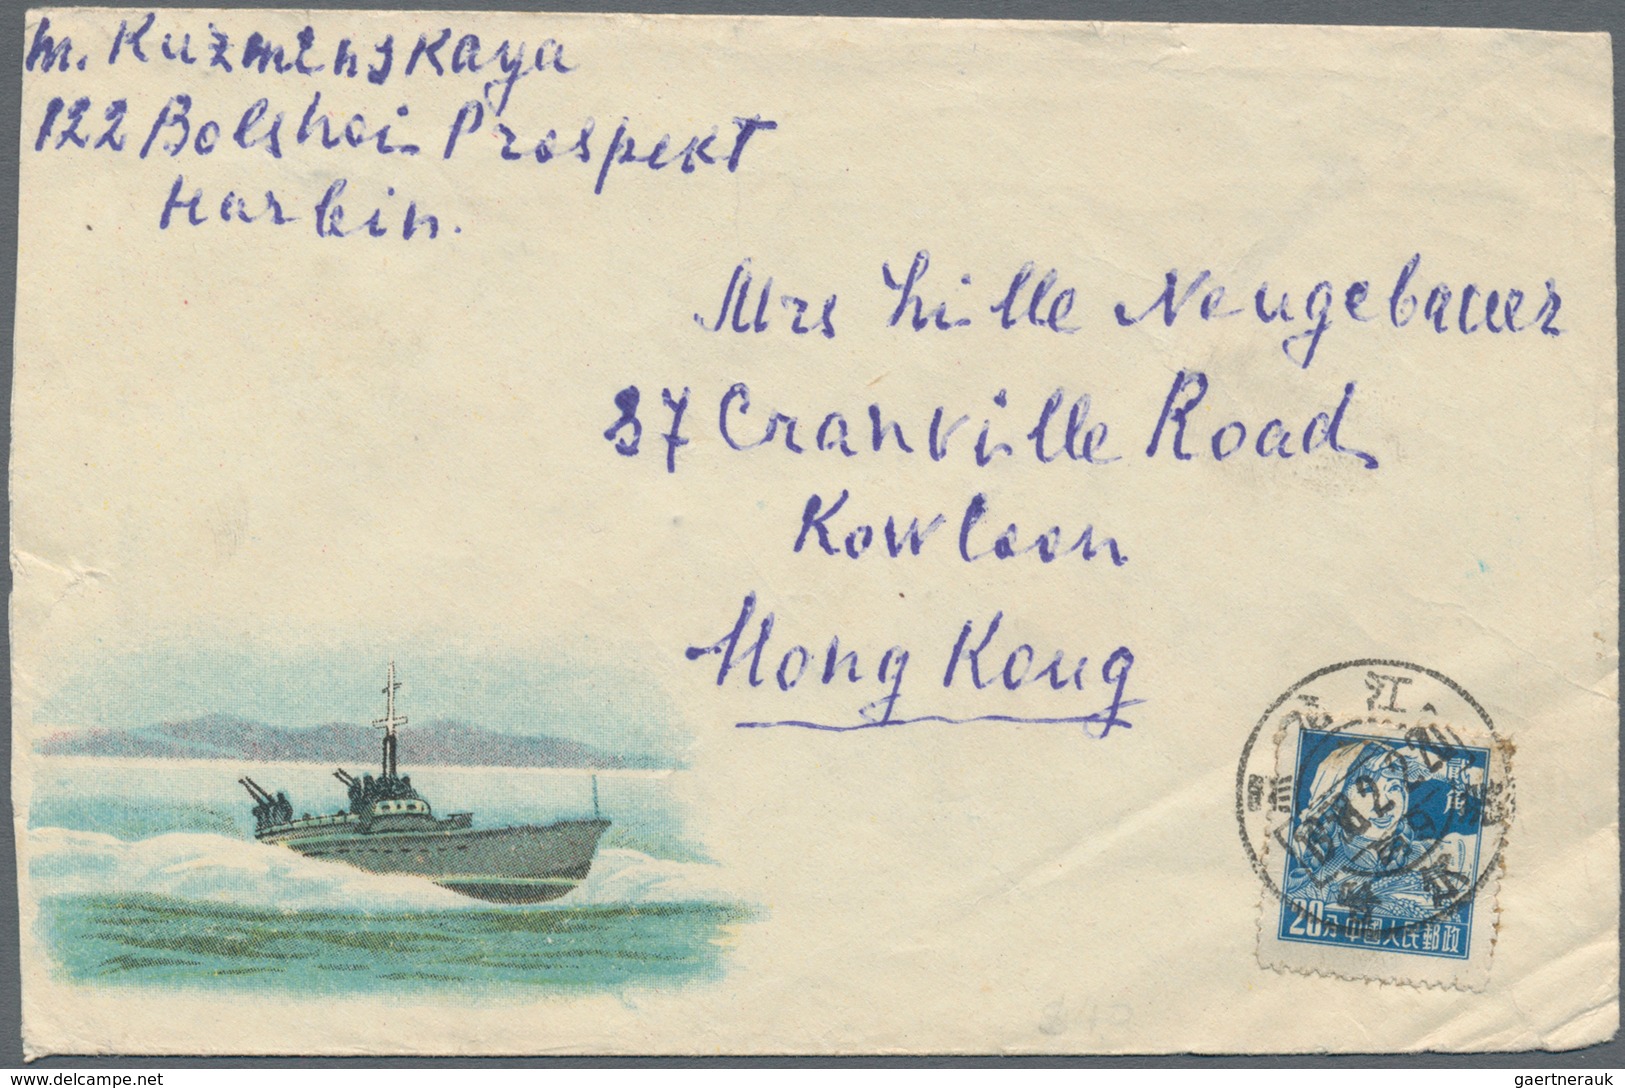 M. Kuzminskaya
122 Bolshoi Prospekt
Harbin.
Mrs Lille Neugebauer
37 Cranville Road
Kowloon
Hong Kong
江
20分 中国人民郵政
delcampe.net
gaertnerauk